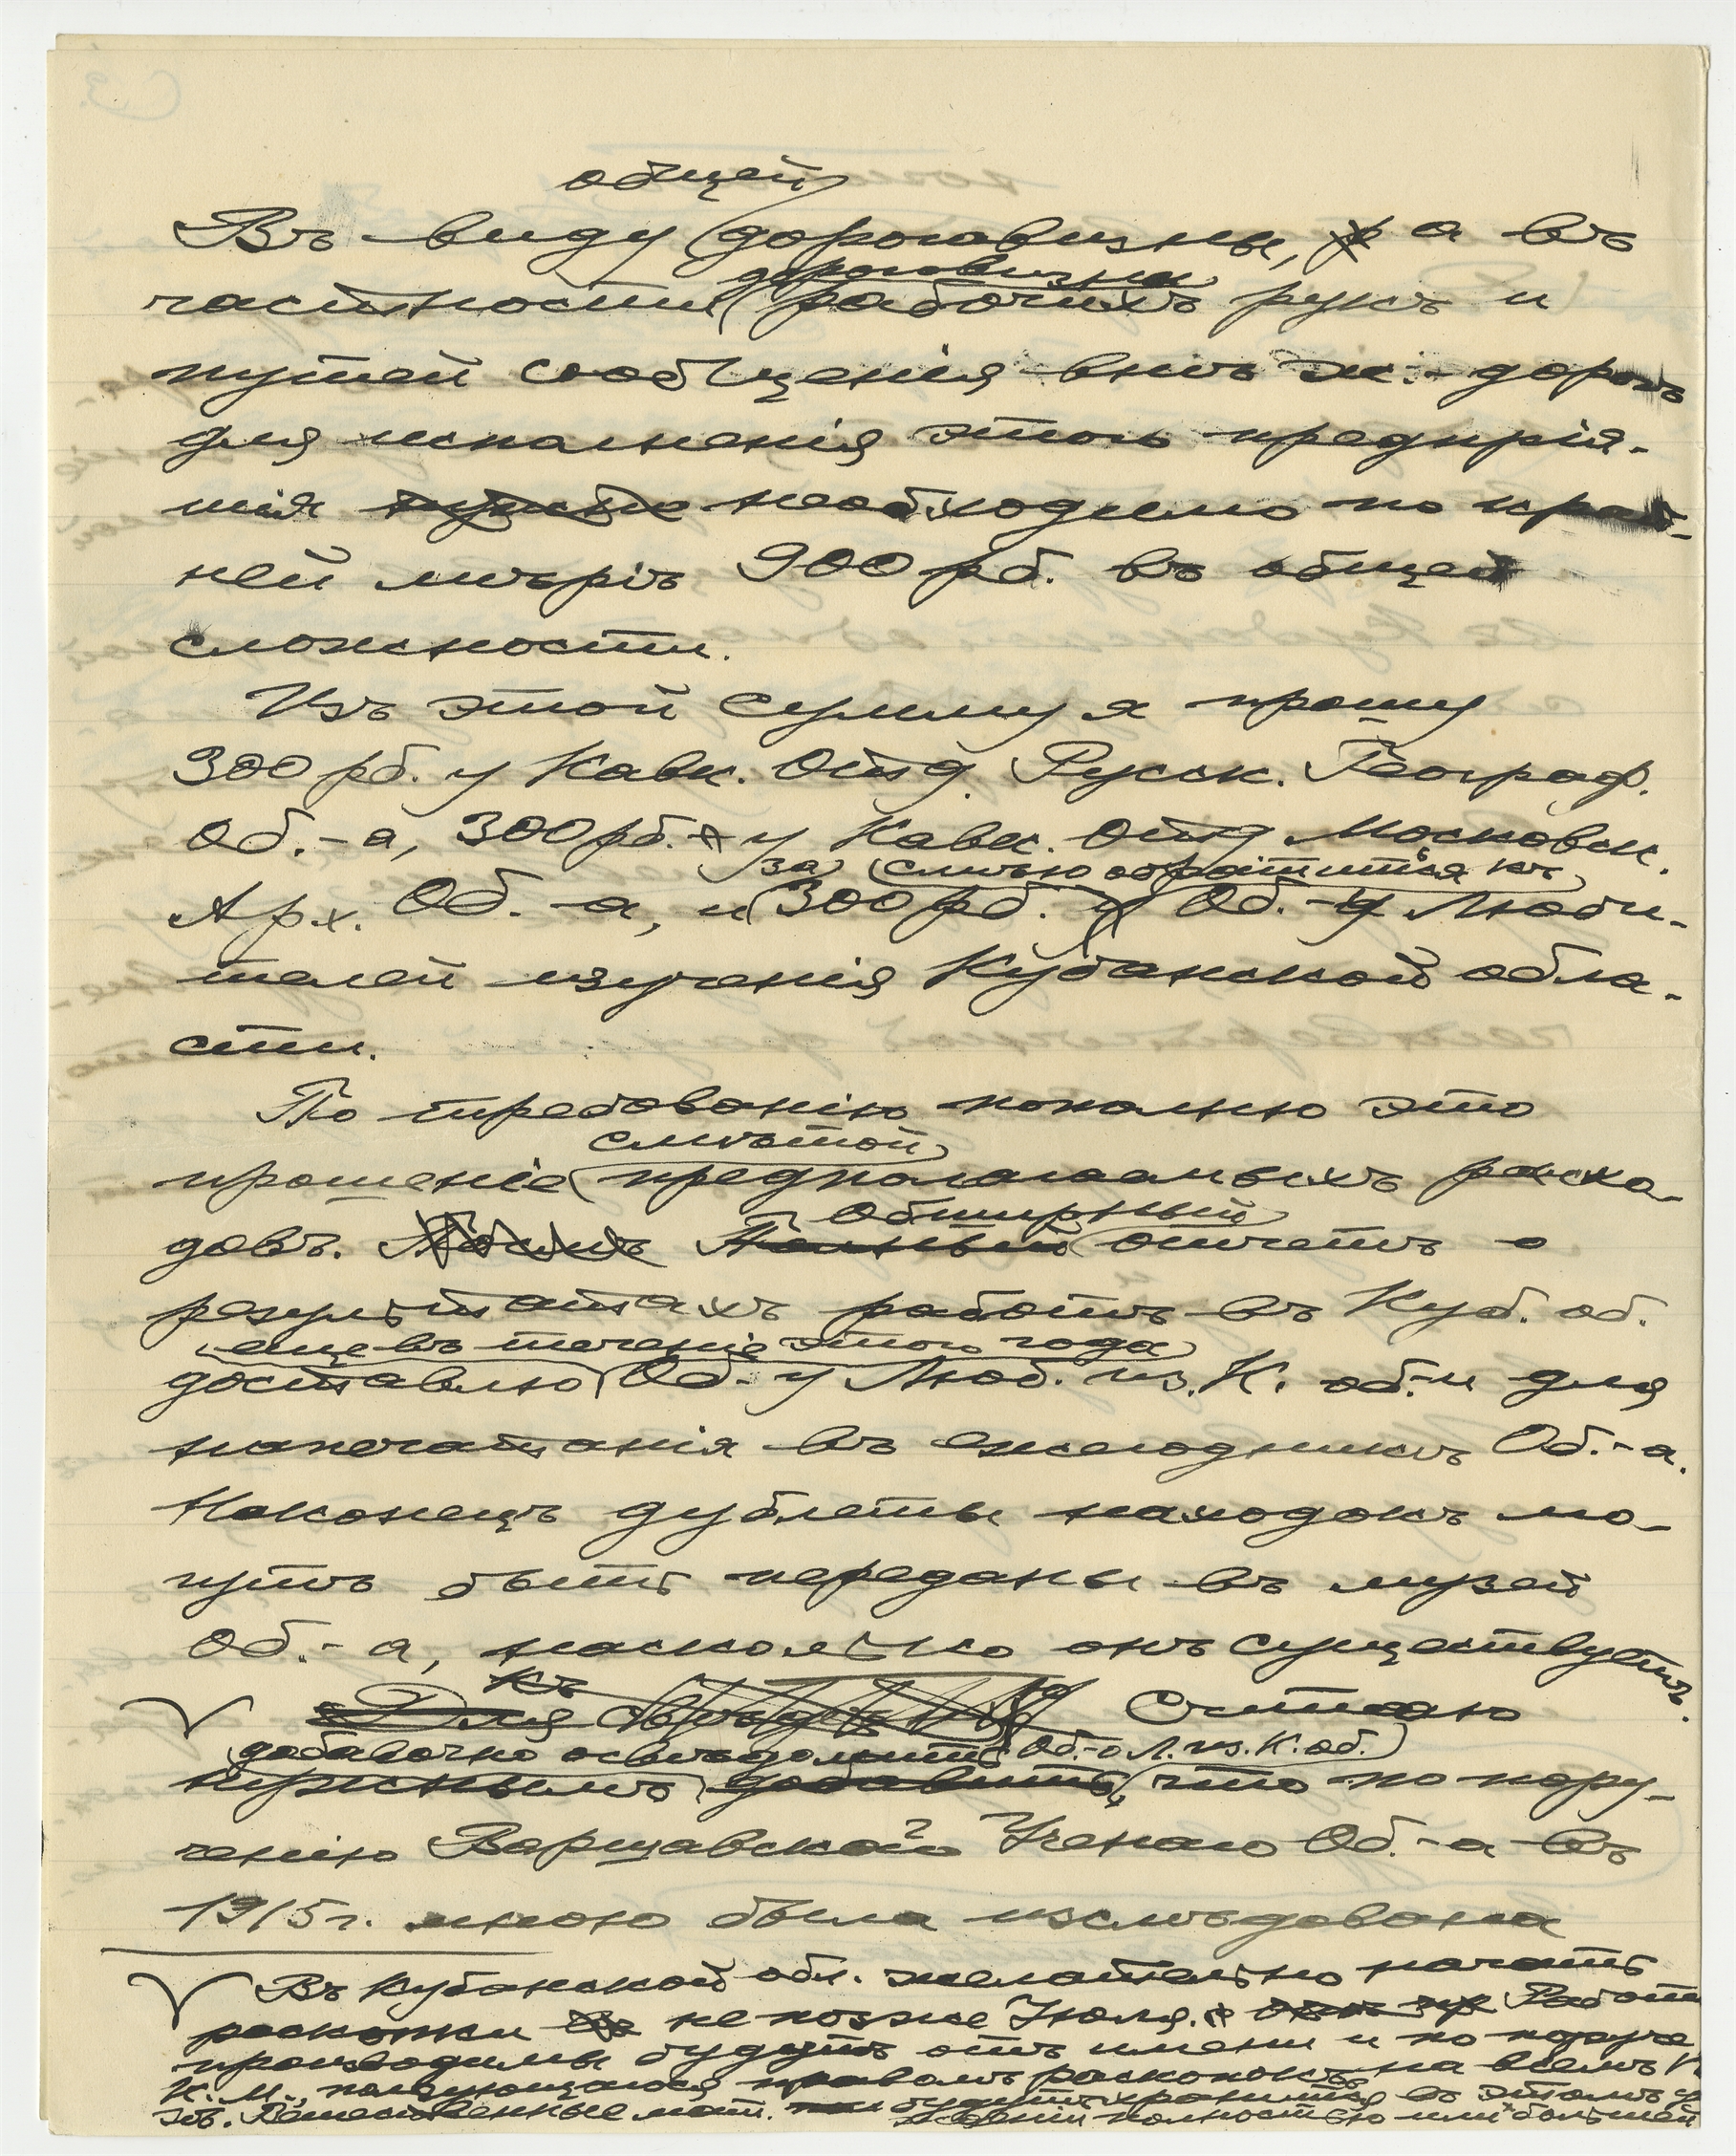 общей
Въ виду дороговизны, а въ
дороговизна
частности рабочихъ рукъ и
путей сообщенія внѣ ж.-дорогъ
для исполненія этого предпрія-
тія нужно необходимо по край-
ней мѣрѣ 900 рб. въ общей
сложности.
Изъ этой сумму я прошу
300 рб. у Кавк. Отд. Русск. Географ.
Об.-а, 300 рб. у Кавк. Отд. Московск.
за смѣю обратиться къ
Арх. Об.-а, и 300 рб. у Об.-у Люби-
телей изученія Кубанской обла-
сти.
По требованію пополню это
смѣтой
прошеніе предполагаемыхъ расхо-
довъ.
Обширный
Полный отчетъ о
результатахъ работъ въ Куб. об.
еще въ теченіе этого года
доставлю Об.-у Люб. из. К. об.-и для
напечатанія въ ежегодникѣ Об.-а.
Наконецъ дублеты находокъ мо-
гутъ быть переданы въ музей
Об.-а, насколько онъ существуетъ.
къ
Для Считаю
добавочно освѣдомить Об.-о Л. из. К. об.
нужнымъ добавить, что по пору-
ченію Варшавского Ученаго Об.-а въ
1915 г. мною была изслѣдована
Въ Кубанской обл. желательно начать
раскопки не позже Іюля. Работы
производимы будутъ отъ имени и по поруче
К. М., пользующагося правомъ раскопокъ на всемъ К
зѣ. Вещественные мат. будутъ храниться въ этомъ у
полностью или большей